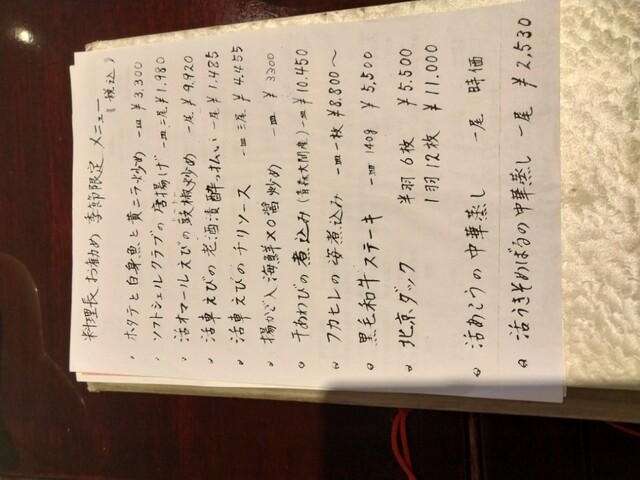 料理長 お勧め 季節限定 メニュー 《税込》
、ホタテと白身魚と黄ニラ炒め 一皿 ¥3,300
、ソフトシェルクラブの唐揚げ 一皿二尾 ¥1,980
、活オマールえびの豉椒炒め 一尾 ¥9,920
、活車えびの老酒漬酔っ払い 一尾 ¥1,485
、活車えびのチリソース 一皿三尾 ¥4,455
、揚かご入海鮮XO醤炒め 一皿 ¥3300
○干あわびの煮込み(青森大間産)一皿 ¥10.450
○フカヒレの姿煮込み 一皿一枚 ¥8,800〜
○黒毛和牛ステーキ 一皿 140g ¥5,500
○北京ダック 半羽 6枚 ¥5.500
1羽 12枚 ¥11.000
○活あこうの中華蒸し 一尾 時価
○活うきそめばるの中華蒸し 一尾 ¥2,530